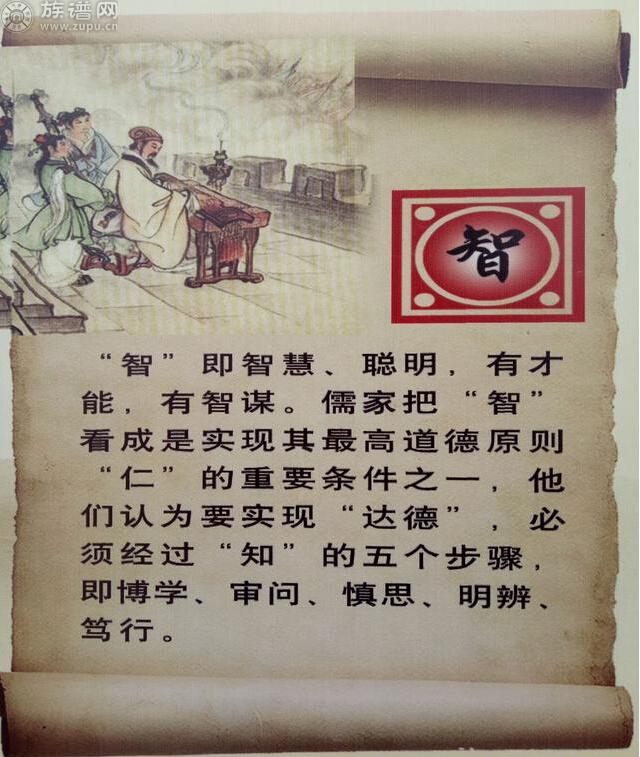 族谱网
www.zupu.cn
智
“智”即智慧、聪明，有才
能，有智谋。儒家把“智”
看成是实现其最高道德原则
“仁”的重要条件之一，他
们认为要实现“达德”，必
须经过“知”的五个步骤，
即博学、审问、慎思、明辨、
笃行。